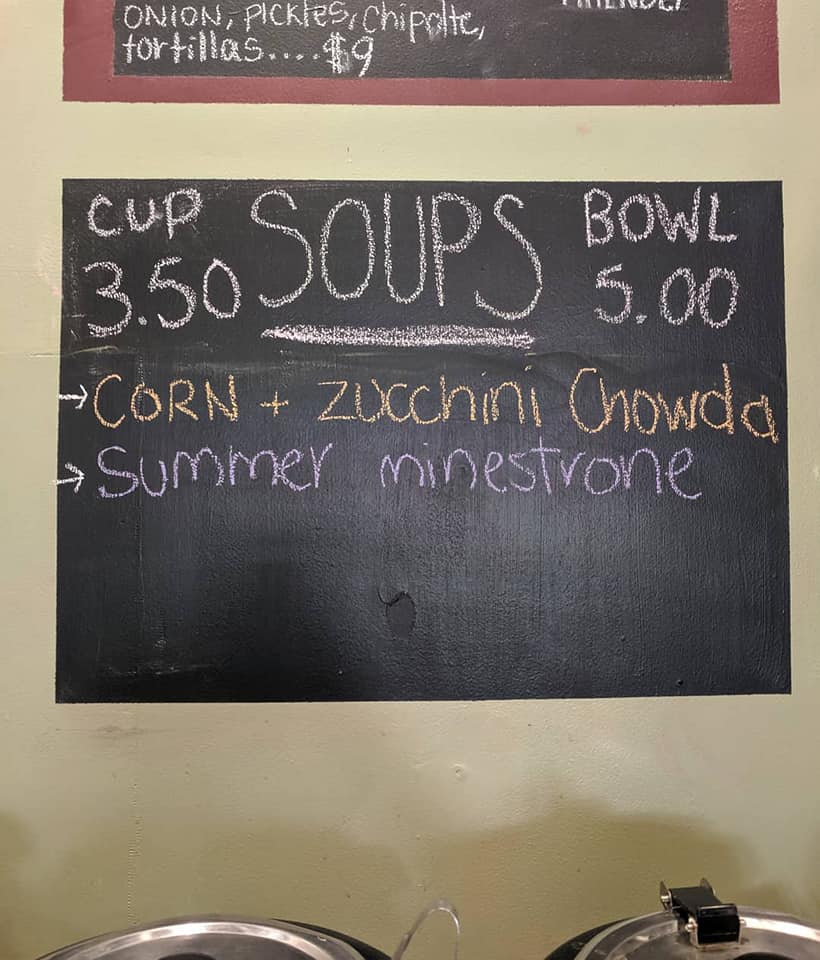 ONION, pickles, chipolte,
tortillas....$9
CUP SOUPS BOWL
3.50 5.00
→CORN + zucchini Chowda
→Summer minestrone